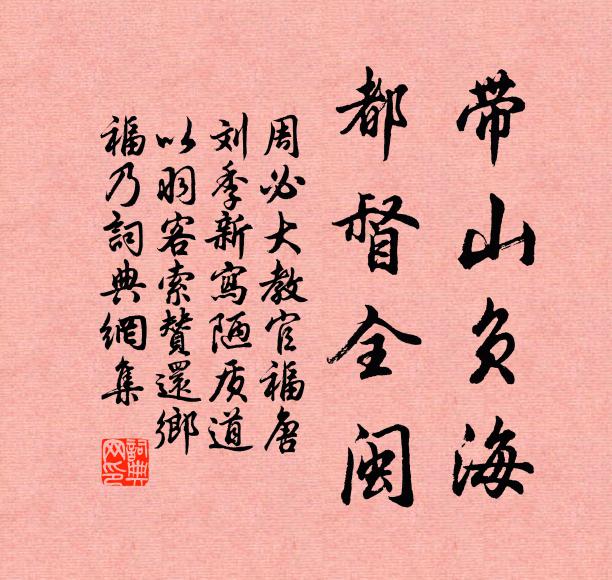 带山负海
都督全闽
周必大教官福唐
刘季新寫陋质道
以羽客索赞還鄉
福乃詞典網集
詞典网印